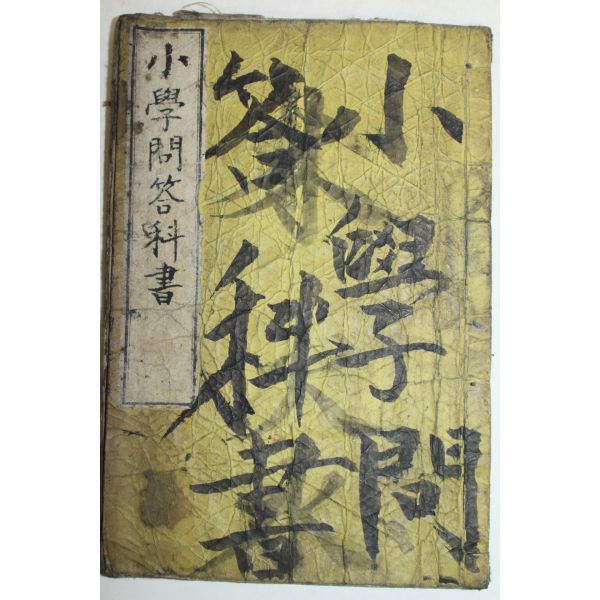 小學問
答科書
小學問答科書